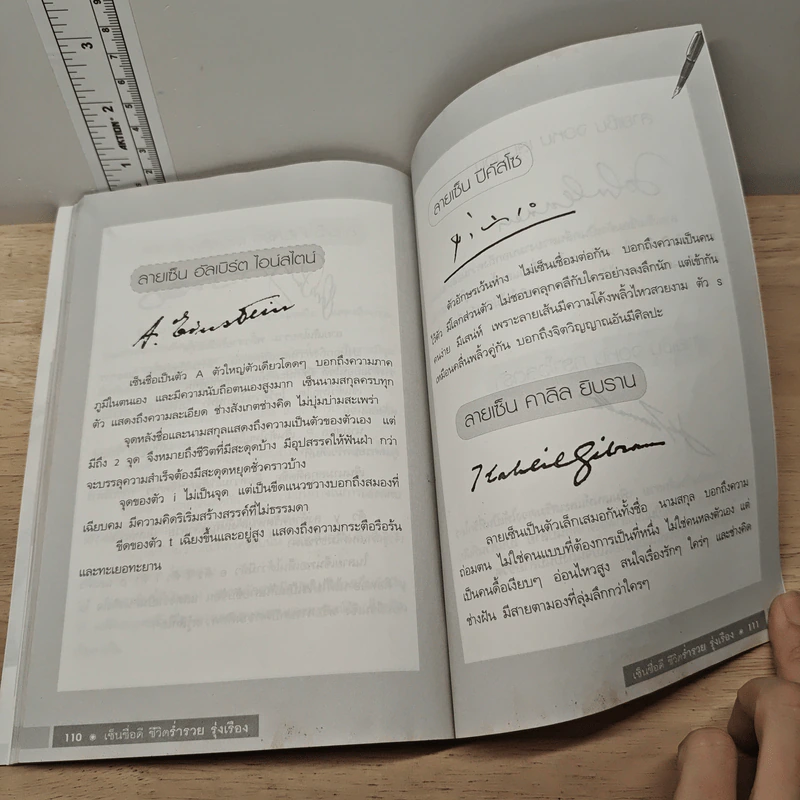 ลายเซ็น อัลเบิร์ต ไอน์สไตน์
A. Einstein
เซ็นชื่อเป็นตัว A ตัวใหญ่ตัวเดียวโดดๆ บอกถึงความภาค
ภูมิในตนเอง และมีความนับถือตนเองสูงมาก เซ็นนามสกุลครบทุก
ตัว แสดงถึงความละเอียด ช่างสังเกตช่างคิด ไม่บุ่มบ่ามสะเพร่า
จุดหลังชื่อและนามสกุลแสดงถึงความเป็นตัวของตัวเอง แต่
มีถึง 2 จุด จึงหมายถึงชีวิตที่มีสะดุดบ้าง มีอุปสรรคให้ฟันฝ่า กว่า
จะบรรลุความสำเร็จต้องมีสะดุดหยุดชั่วคราวบ้าง
จุดของตัว i ไม่เป็นจุด แต่เป็นขีดแนวขวางบอกถึงสมองที่
เฉียบคม มีความคิดริเริ่มสร้างสรรค์ที่ไม่ธรรมดา
ขีดของตัว t เฉียงขึ้นและอยู่สูง แสดงถึงความกระตือรือร้น
และทะเยอทะยาน
110 เซ็นชื่อดี ชีวิตร่ำรวย รุ่งเรือง
ลายเซ็น ปิคัสโซ
ตัวอักษรเว้นห่าง ไม่เซ็นเชื่อมต่อกัน บอกถึงความเป็นคน
ไว้ตัว มีโลกส่วนตัว ไม่ชอบคลุกคลีกับใครอย่างลงลึกนัก แต่เข้ากับ
คนง่าย มีเสน่ห์ เพราะลายเส้นมีความโค้งพลิ้วไหวสวยงาม ตัว s
เหมือนคลื่นพลิ้วคู่กัน บอกถึงจิตวิญญาณอันมีศิลปะ
ลายเซ็น คาลิล ยิบราน
Kahlil Gibran
ลายเซ็นเป็นตัวเล็กเสมอกันทั้งชื่อ นามสกุล บอกถึงความ
ถ่อมตน ไม่ใช่คนแบบที่ต้องการเป็นที่หนึ่ง ไม่ใช่คนหลงตัวเอง แต่
เป็นคนดื้อเงียบๆ อ่อนไหวสูง สนใจเรื่องรักๆ ใคร่ๆ และช่างคิด
ช่างฝัน มีสายตามองที่ลุ่มลึกกว่าใครๆ
เซ็นชื่อดี ชีวิตร่ำรวย รุ่งเรือง 111
AKTION
1
2
3